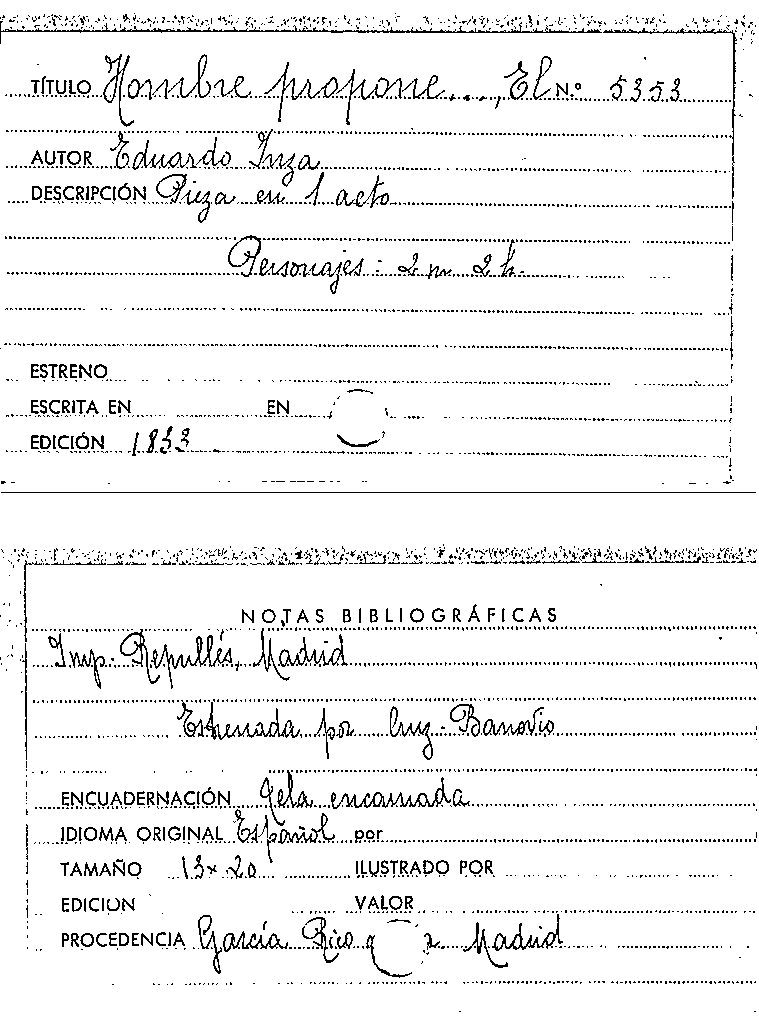 TÍTULO Hombre propone..., El N.º 5353
AUTOR Eduardo Inza
DESCRIPCIÓN Pieza en 1 acto
Personajes: 2 m 2 h.
ESTRENO
ESCRITA EN EN
EDICIÓN 1853
NOTAS BIBLIOGRÁFICAS
Imp. Repullés, Madrid
Estrenada por Cruz-Banovio
ENCUADERNACIÓN Tela encarnada
IDIOMA ORIGINAL Español por
TAMAÑO 13 x 20 ILUSTRADO POR
EDICION VALOR
PROCEDENCIA García Rico Madrid